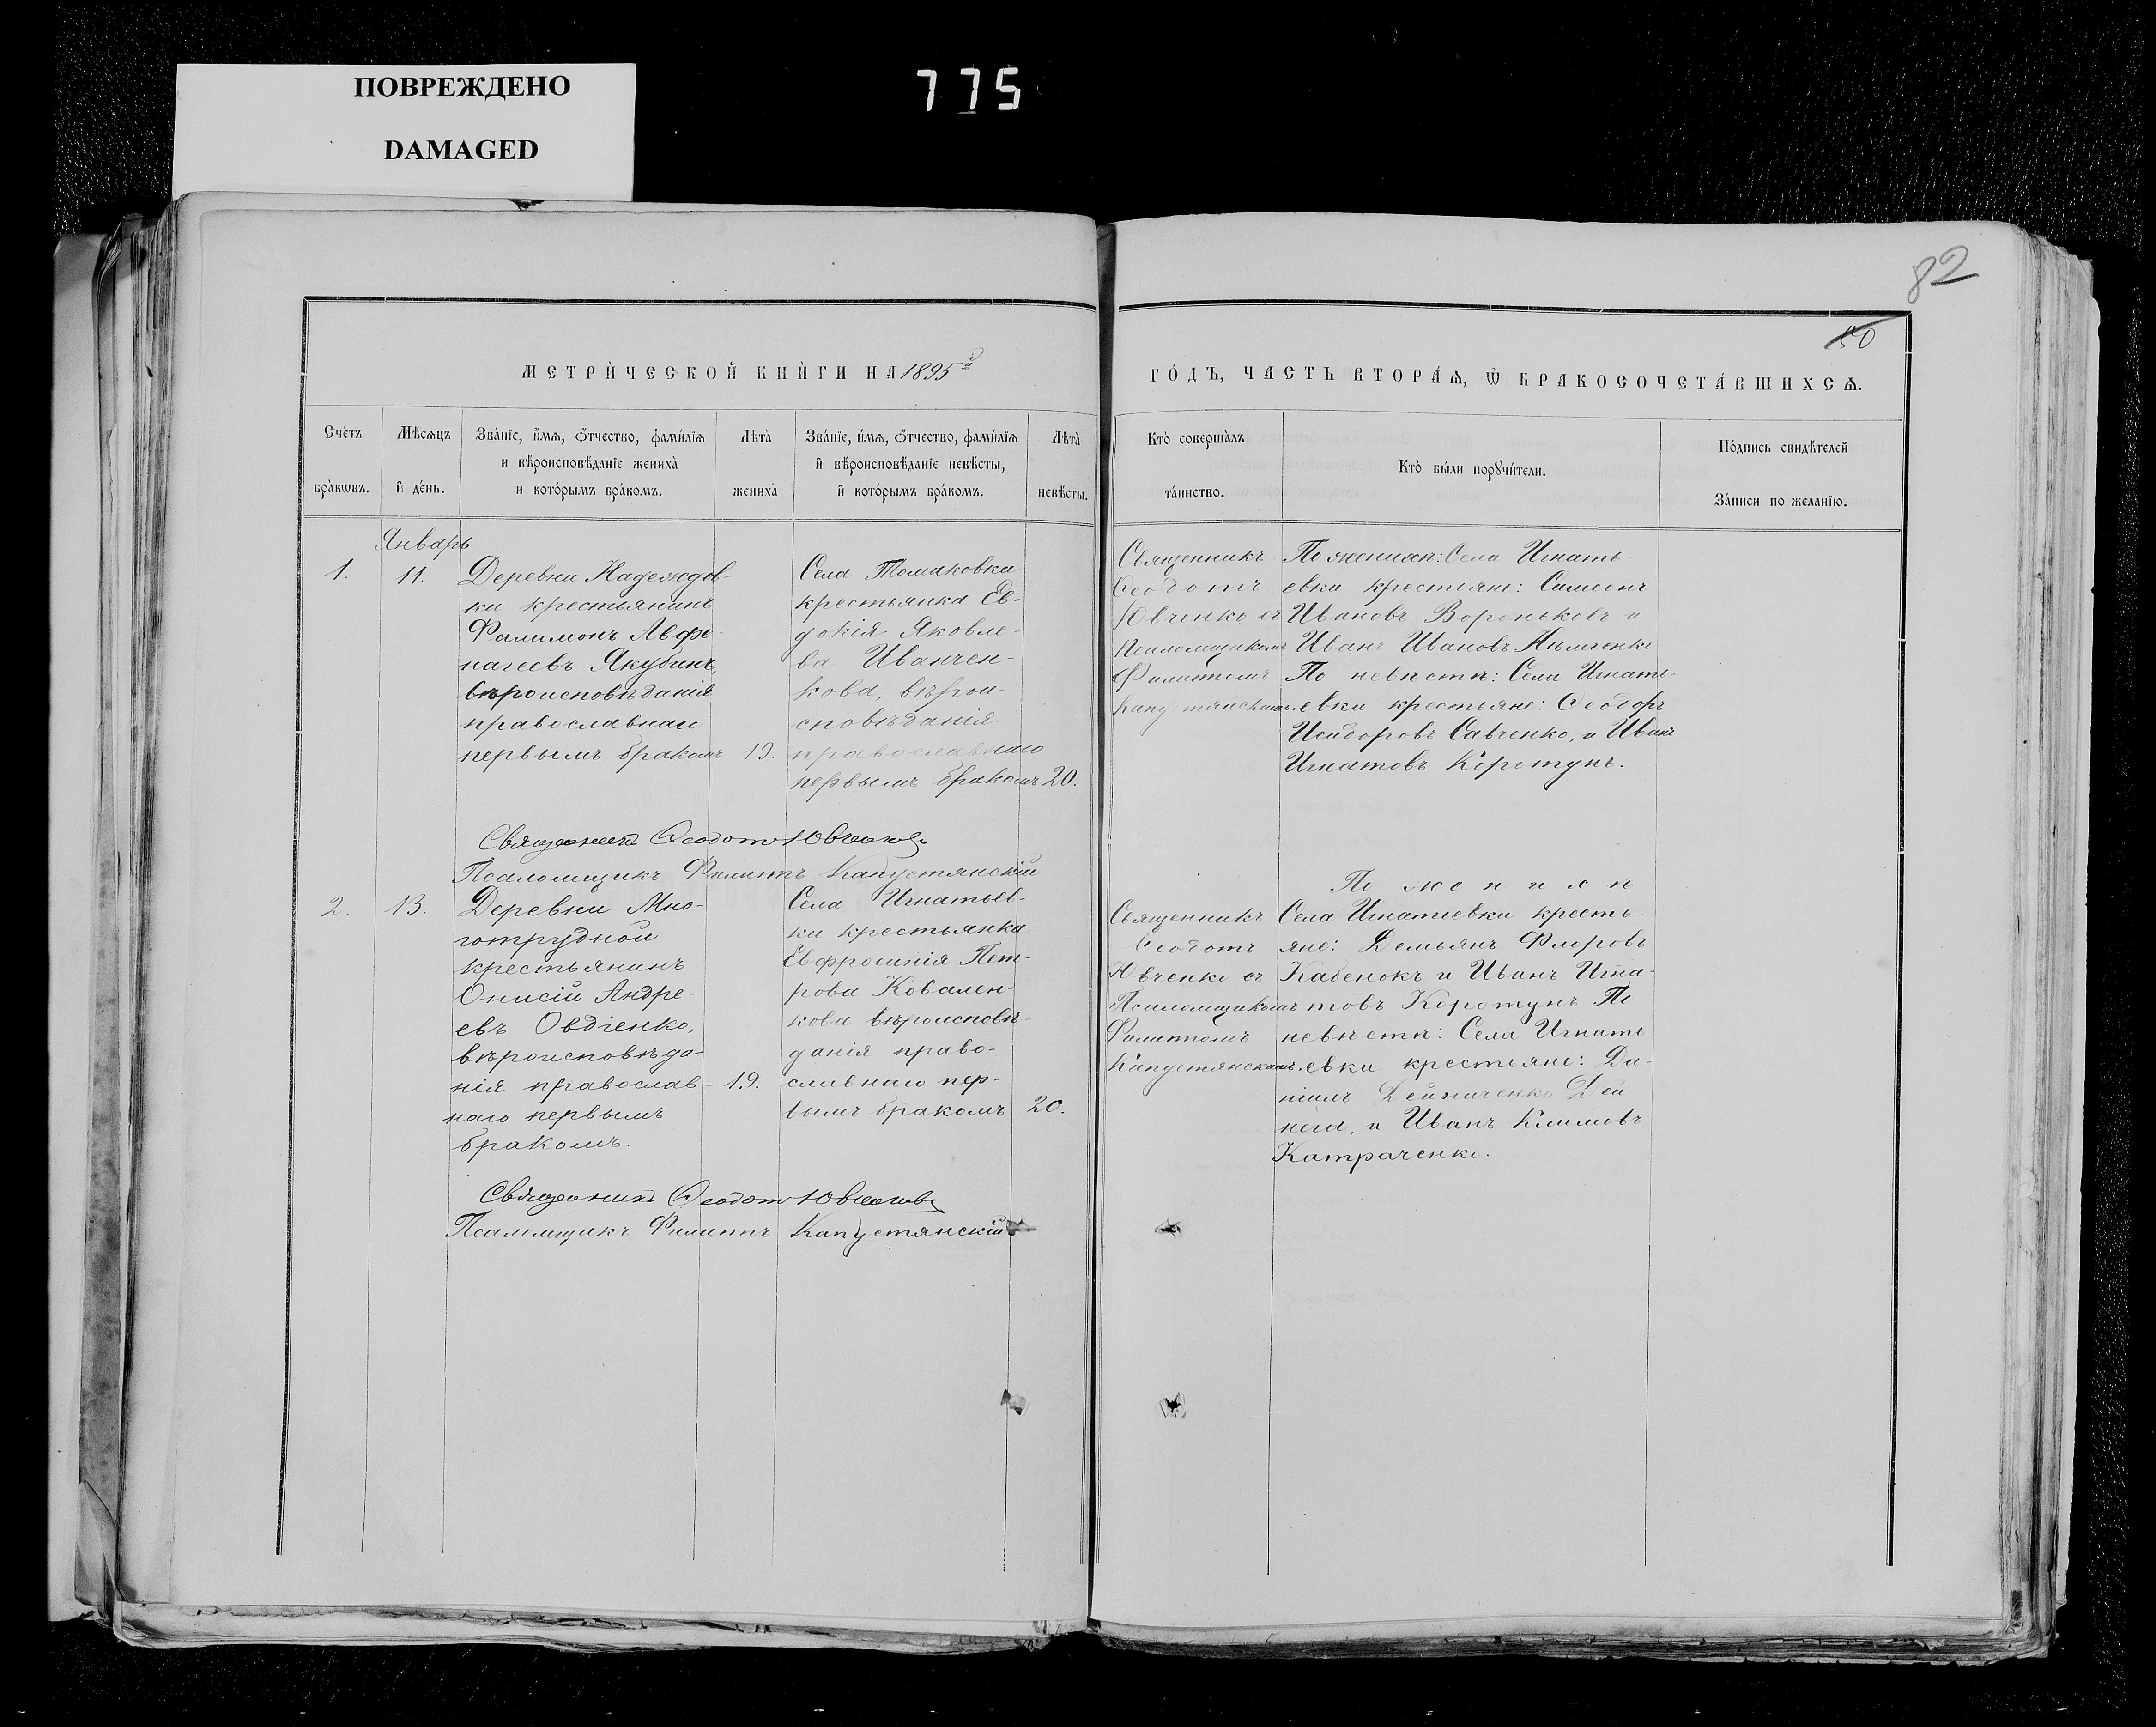 ПОВРЕЖДЕНО
DAMAGED
775
82
50
МЕТРИ́ЧЕСКОЙ КНИ́ГИ НА 1895й
ГО́ДЪ, ЧАСТЬ ВТОРА́Ѧ, Ѽ БРАКОСОЧЕТА́ВШИХСѦ.
Сче́тъ бра́кѡвъ.
Мѣсѧцъ и҆ де́нь.
Зва́нїе, и҆́мѧ, ѻ҆́тчество, фами́лїѧ
и вѣроисповѣ́данїе жениха̀
и кото́рымъ бра́комъ.
Лѣта̀ жениха̀
Зва́нїе, и҆́мѧ, ѻ҆́тчество, фами́лїѧ
и҆ вѣроисповѣ́данїе невѣ́сты,
и҆ кото́рымъ бра́комъ.
Лѣта̀ невѣ́сты.
Кто̀ соверша́лъ
та́инство.
Кто̀ бы́ли порꙋчи́тели.
По́дпись свидѣ́телей
За́писи по жела́нїю.
Январь
1.
11.
Деревни Надеждов-
ки крестьянинъ
Филимонъ Авфе-
нагеевъ Якубинъ,
вѣроисповѣданія
православнаго
первымъ бракомъ
19.
Села Томаковки
крестьянка Ев-
докія Яковле-
ва Иванчен-
кова, вѣрои-
сповѣданія
православнаго
первымъ бракомъ
20.
Священникъ
Ѳеодотъ
Ювченко съ
Псаломщикомъ
Филиппомъ
Капустянскимъ.
По женихѣ: Села Игнать-
евки крестьяне: Симеонъ
Ивановъ Вороньковъ и
Иванъ Ивановъ Нѣмченко
По невѣстѣ: Села Игнать-
евки крестьяне: Ѳеодоръ
Исидоровъ Савченко, и Иванъ
Игнатовъ Коротунъ.
Священникъ Ѳеодотъ Ювченко
Псаломщикъ Филиппъ Капустянскій
2.
13.
Деревни Мно-
готрудной
крестьянинъ
Онисій Андре-
евъ Овдіенко,
вѣроисповѣда-
нія православ-
наго первымъ
бракомъ.
19.
Села Игнатьев-
ки крестьянка
Евфросинія Пет-
рова Ковален-
кова вѣроисповѣ-
данія право-
славнаго пер-
вымъ бракомъ
20.
Священникъ
Ѳеодотъ
Ювченко съ
Псаломщикомъ
Филиппомъ
Капустянскимъ.
По женихѣ
Села Игнатиевки кресть-
яне: Демьянъ Флоровъ
Кабенокъ и Иванъ Игна-
товъ Коротунъ По
невѣстѣ: Села Игнать
евки крестьяне: Да-
ніилъ Дейниченко Дей
нега, и Иванъ Климовъ
Катраченко.
Священникъ Ѳеодотъ Ювченко
Псаломщикъ Филиппъ Капустянскій